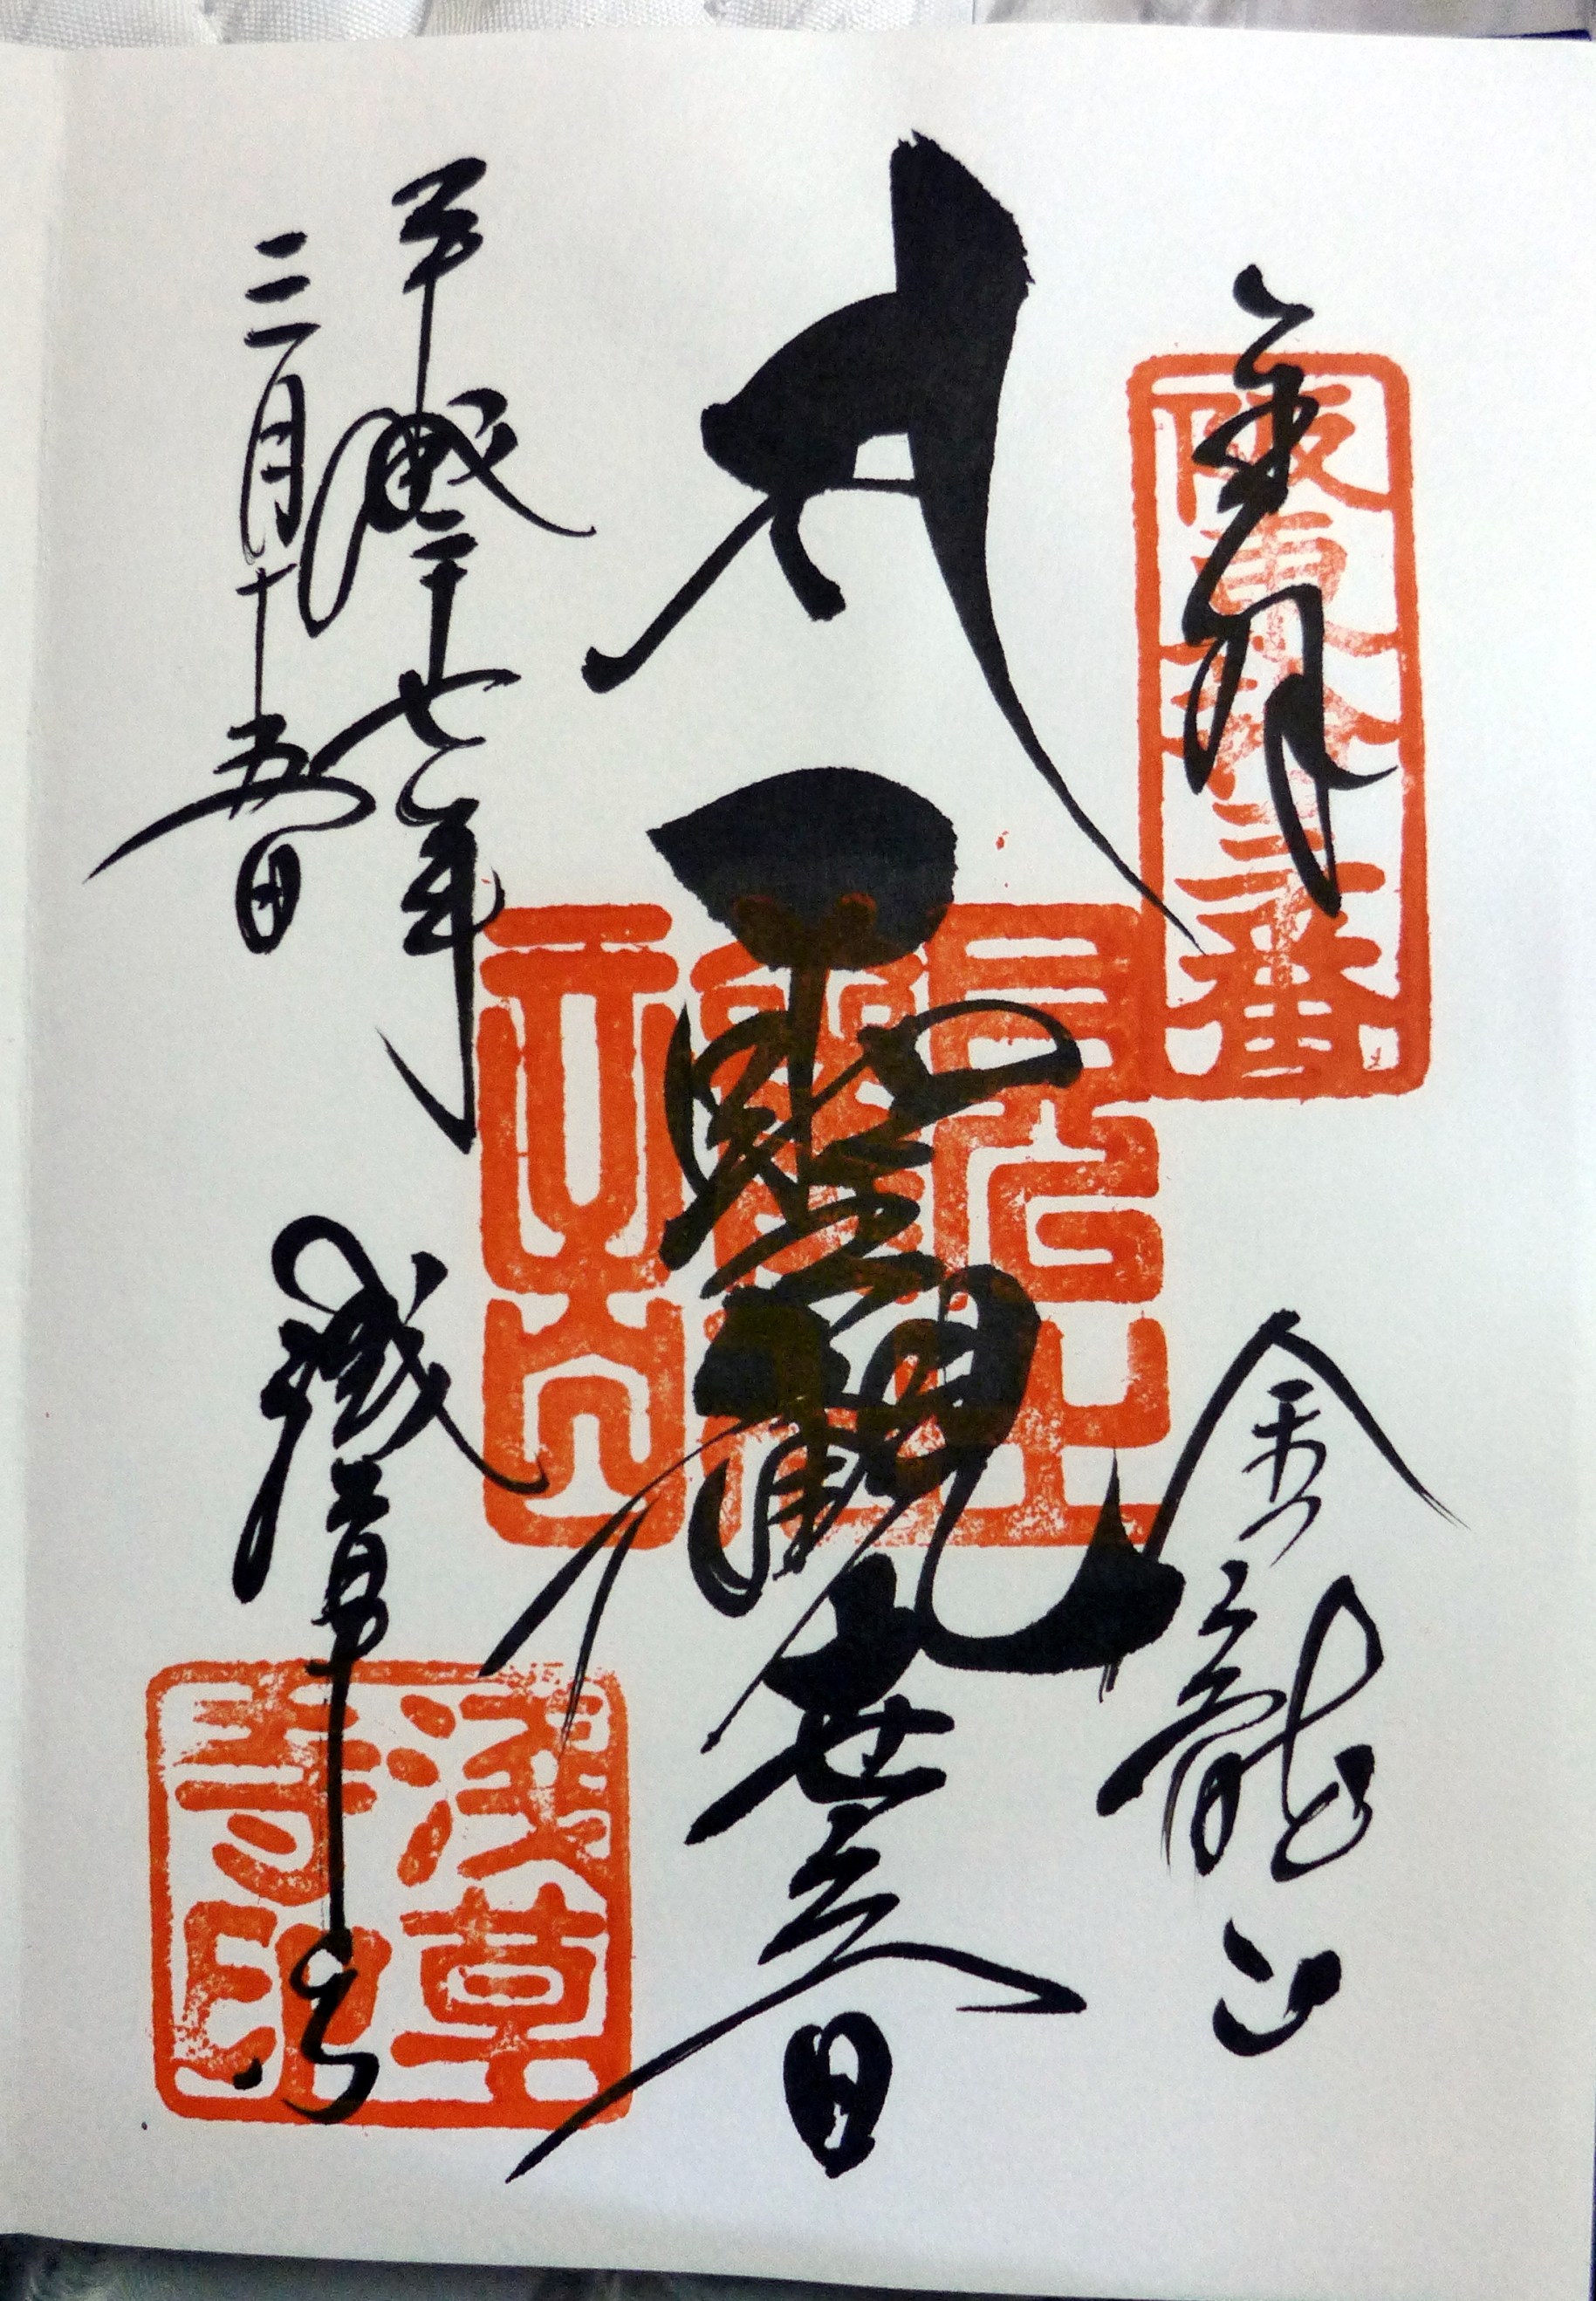 奉拝
金龍山
阪東拾三番
聖観世音
平成二十七年
二月十五日
浅草寺
浅草寺印